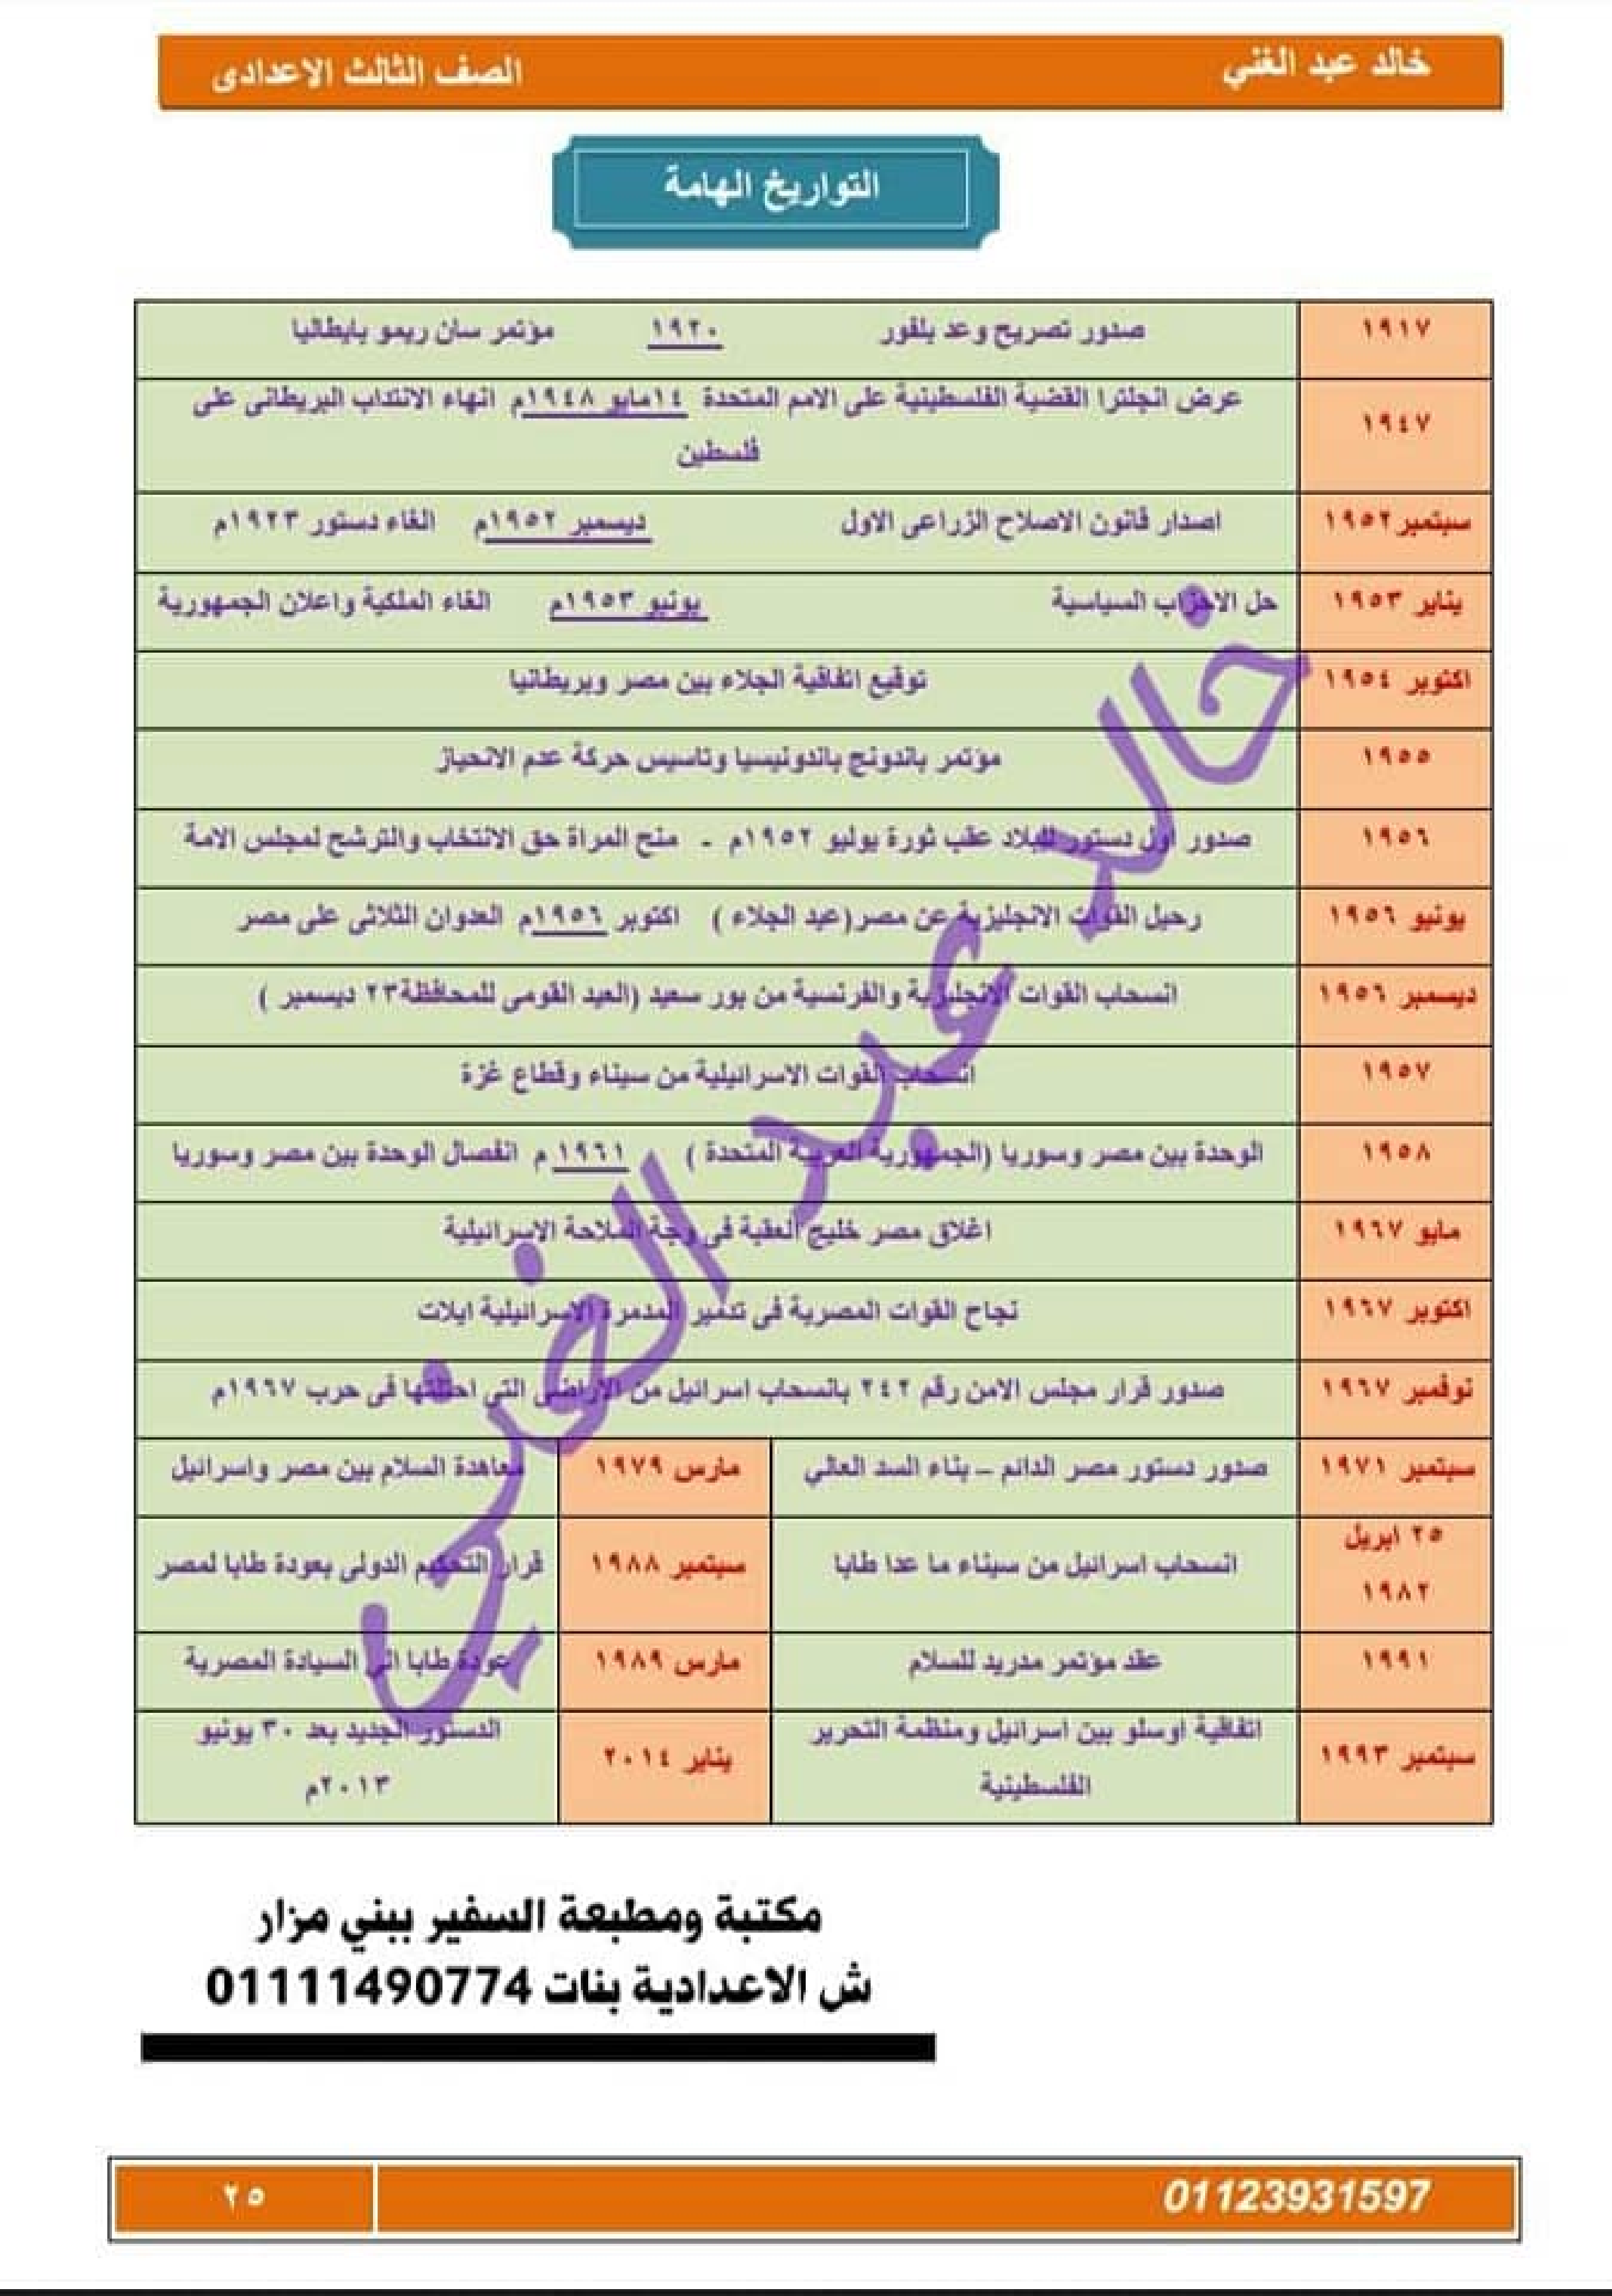 خالد عبد الغني
الصف الثالث الاعدادى
التواريخ الهامة
١٩١٧ صدور تصريح وعد بلفور ١٩٢٠ مؤتمر سان ريمو بايطاليا
١٩٤٧ عرض انجلترا القضية الفلسطينية على الامم المتحدة ١٤مايو ١٩٤٨م انهاء الانتداب البريطانى على
فلسطين
سبتمبر١٩٥٢ اصدار قانون الاصلاح الزراعى الاول ديسمبر ١٩٥٢م الغاء دستور ١٩٢٣م
يناير ١٩٥٣ حل الاحزاب السياسية يونيو ١٩٥٣م الغاء الملكية واعلان الجمهورية
اكتوبر ١٩٥٤ توقيع اتفاقية الجلاء بين مصر وبريطانيا
١٩٥٥ مؤتمر باندونج باندونيسيا وتاسيس حركة عدم الانحياز
١٩٥٦ صدور اول دستور للبلاد عقب ثورة يوليو ١٩٥٢م - منح المراة حق الانتخاب والترشح لمجلس الامة
يونيو ١٩٥٦ رحيل القوات الانجليزية عن مصر(عيد الجلاء ) اكتوبر ١٩٥٦م العدوان الثلاثى على مصر
ديسمبر ١٩٥٦ انسحاب القوات الانجليزية والفرنسية من بور سعيد (العيد القومى للمحافظة٢٣ ديسمبر )
١٩٥٧ انسحاب القوات الاسرائيلية من سيناء وقطاع غزة
١٩٥٨ الوحدة بين مصر وسوريا (الجمهورية العربية المتحدة ) ١٩٦١ م انفصال الوحدة بين مصر وسوريا
مايو ١٩٦٧ اغلاق مصر خليج العقبة فى وجة الملاحة الاسرائيلية
اكتوبر ١٩٦٧ نجاح القوات المصرية فى تدمير المدمرة الاسرائيلية ايلات
نوفمبر ١٩٦٧ صدور قرار مجلس الامن رقم ٢٤٢ بانسحاب اسرائيل من الاراضى التى احتلتها فى حرب ١٩٦٧م
سبتمبر ١٩٧١ صدور دستور مصر الدائم – بناء السد العالي مارس ١٩٧٩ معاهدة السلام بين مصر واسرائيل
٢٥ ابريل
١٩٨٢ انسحاب اسرائيل من سيناء ما عدا طابا سبتمبر ١٩٨٨ قرار التحكيم الدولى بعودة طابا لمصر
١٩٩١ عقد مؤتمر مدريد للسلام مارس ١٩٨٩ عودة طابا الى السيادة المصرية
سبتمبر ١٩٩٣ اتفاقية اوسلو بين اسرائيل ومنظمة التحرير
الفلسطينية
يناير ٢٠١٤ الدستور الجديد بعد ٣٠ يونيو
٢٠١٣م
خالد عبد الغني
مكتبة ومطبعة السفير ببني مزار
ش الاعدادية بنات 01111490774
01123931597
٢٥